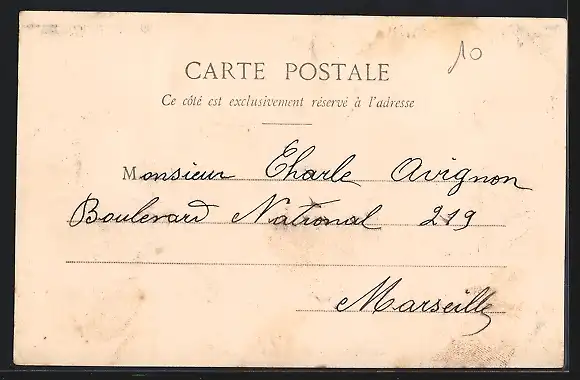 10
CARTE POSTALE
Ce côté est exclusivement réservé à l'adresse
Monsieur Charle Avignon
Boulevard National 219
Marseille